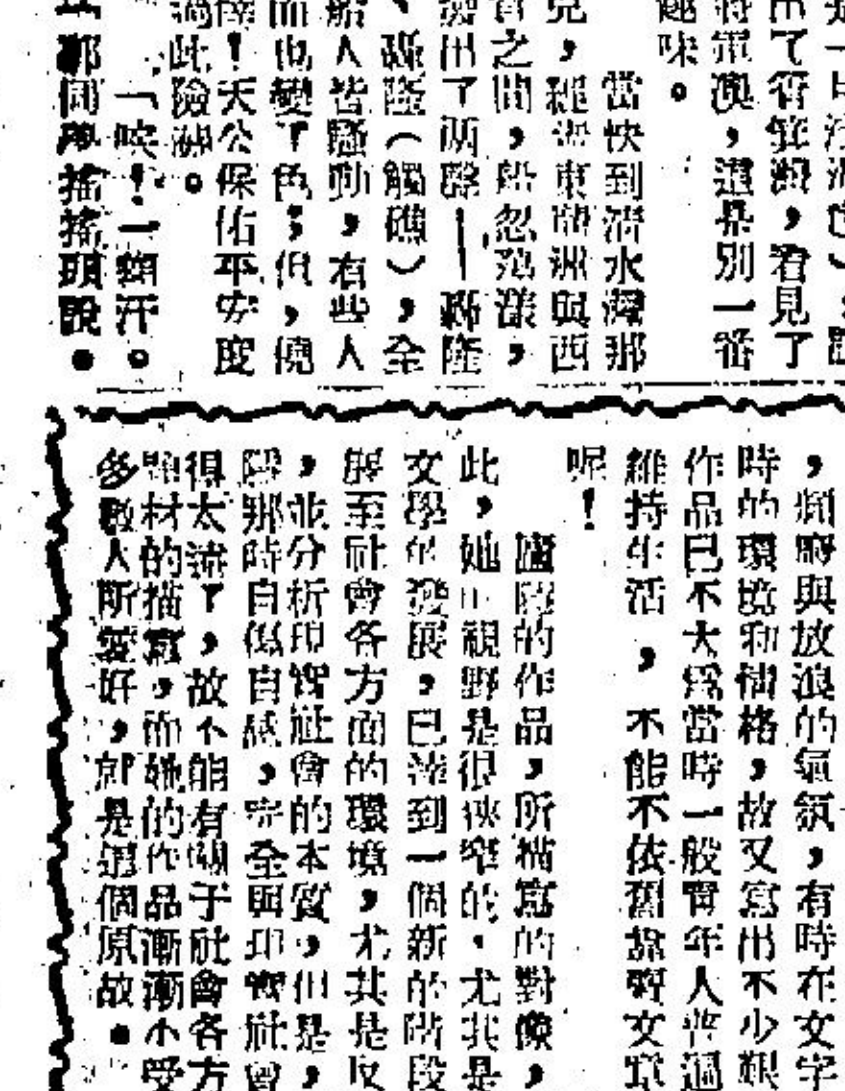 是一
出了看見了
將軍澳，還是別一番
趣味。
當快到清水灣那
兒，經過東龍洲與西
之間，船忽蕩漾，
發出了兩聲——轟隆
、轟隆（觸礁），全
船人皆騷動，有些人
而也變了色；但，僥
！天公保佑平安度
過此險礁。
「唉！一額汗。
那個學搖搖頭說。
，頹廢與放浪的氣氛，有時在文字
時的環境和情格，故又寫出不少艱
作品已不大為當時一般青年人普遍
維持生活，不能不依舊靠賣文章
呢！
廬隱的作品，所描寫的對像，
此，她的視野是很狹窄的，尤其是
文學的發展，已達到一個新的階段
展至社會各方面的環境，尤其是反
，並分析印實社會的本質，但是，
隱那時自傷自感，完全與印實社會
得太遠了，故不能有關于社會各方
題材的描寫，而她的作品漸漸不受
多數人所愛好，就是這個原故。